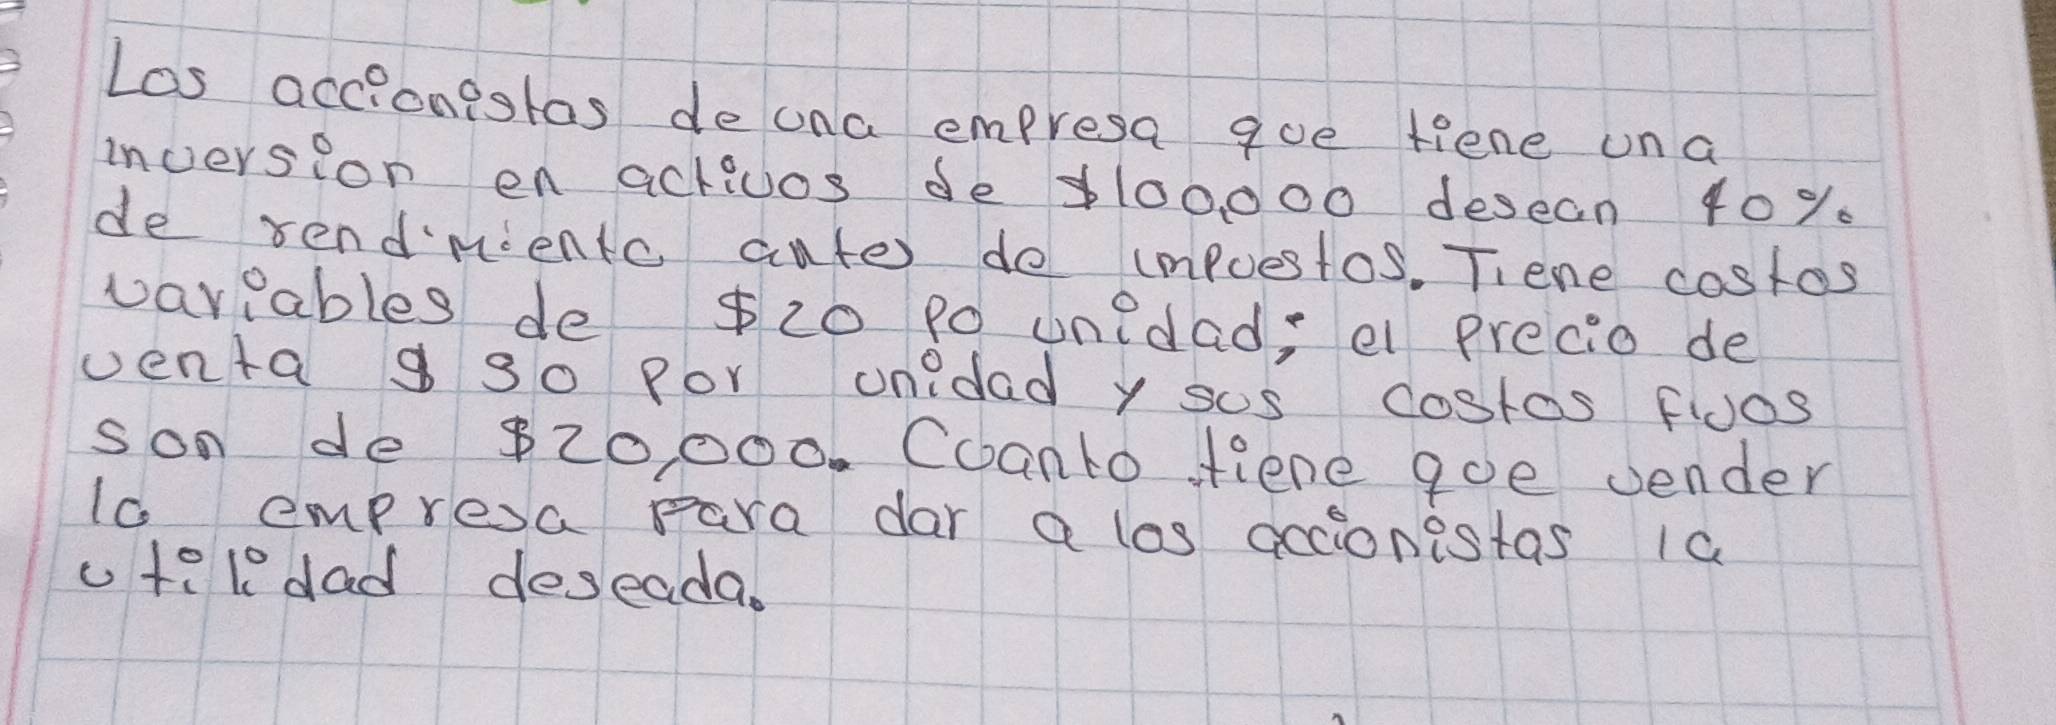 Los accionistas de una empresa que tiene una
inversion en activos de $100,000 desean 40%
de rendimiento antes de impuestos. Tiene costos
variables de $20 po unidad; el precio de
venta $ 30 por unidad y sus costos fijos
son de $20,000. Cuanto tiene que vender
la empresa para dar a los accionistas la
utilidad deseada.